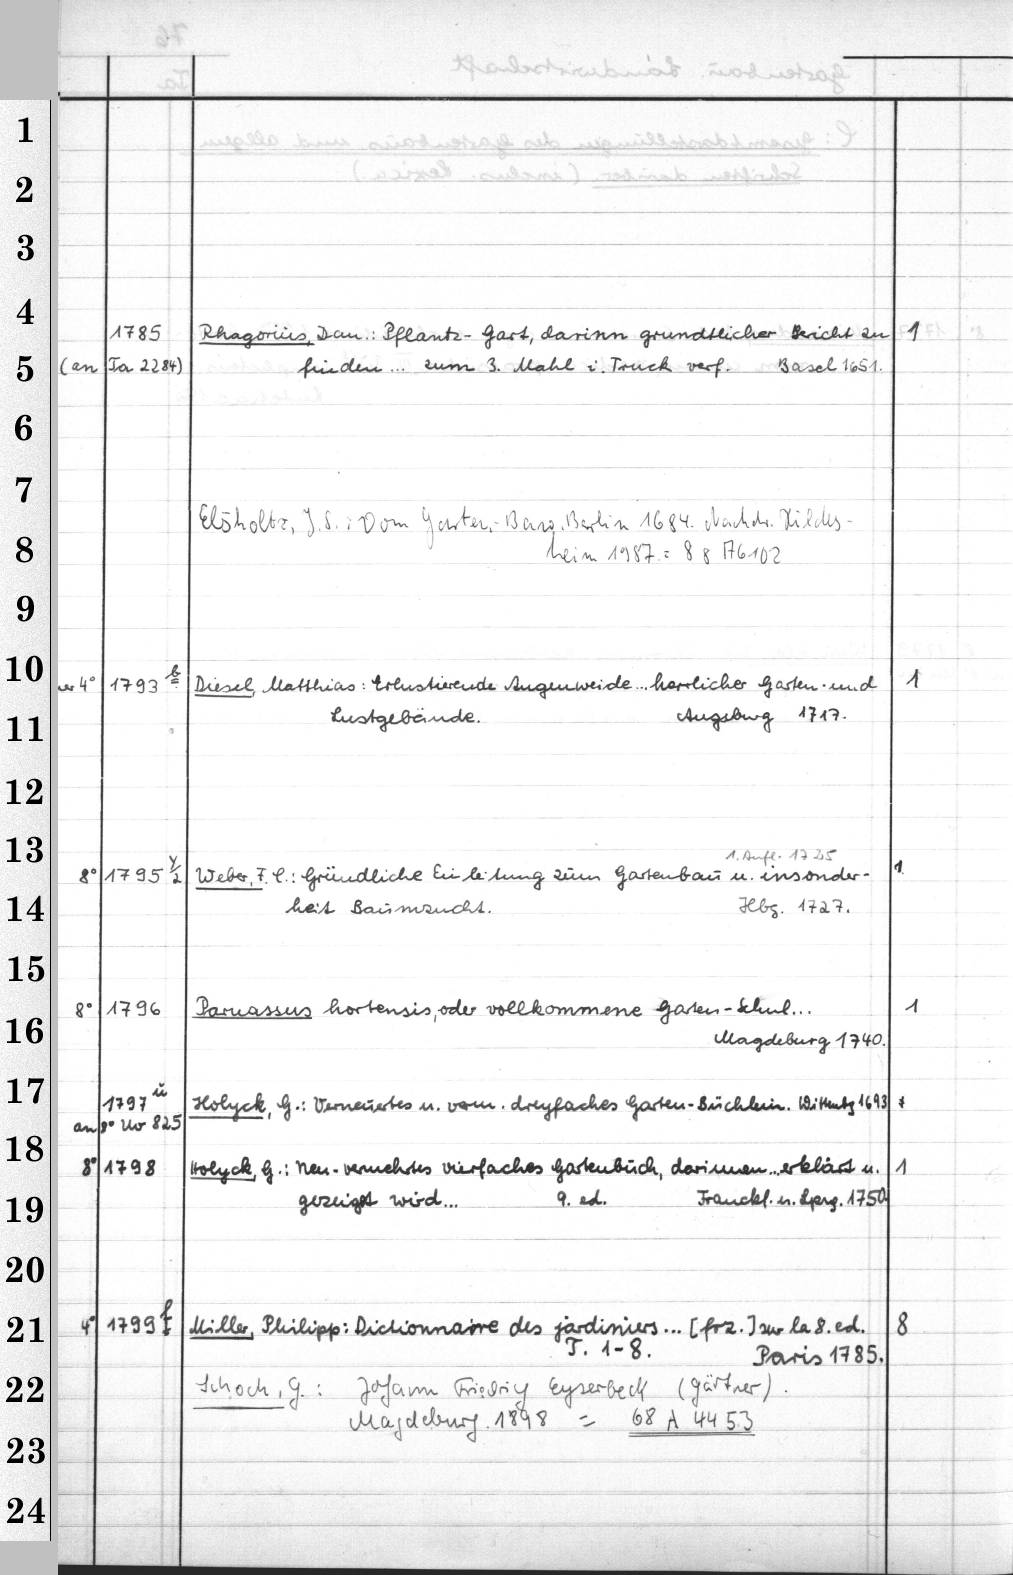 1
2
3
4
1785 Rhagorius, Dan.: Pflantz-Gart, darinn grundtlicher Bericht zu 1
5
(an Ta 2284) finden... zum 3. Mahl i. Truck verf. Basel 1651.
6
7
Elsholtz, J.S.: Vom Garten-Bau, Berlin 1684. Nachdr. Hildes-
8
heim 1987.= 8 8 176102
9
10
4° 1793 b Diesel, Matthias: Erlustierende Augenweide... herrlicher Garten- und 1
11
Lustgebäude. Augsburg 1717.
12
13
1. Aufl. 1725
8° 1795 y/2 Weber, F.C.: Gründliche Einleitung zum Gartenbau u. insonder- 1
14
heit Baumzucht. Hbg. 1727.
15
8° 1796 Parnassus hortensis, oder vollkommene Garten-Schul... 1
16
Magdeburg 1740.
17
1797 ü Holyck, G.: Verneuertes u. verm. dreyfaches Garten-Büchlein. Wittenbg 1693 *
an 8° Uo 825
18
8° 1798 Holyck, G.: Neu-vermehrtes vierfaches Gartenbuch, darinnen... erklärt u. 1
19
gezeigt wird... 9. ed. Franckf. u. Lpzg. 1750
20
4° 1799 f Miller, Philipp: Dictionnaire des jardiniers... [frz.] sur la 8. ed. 8
21
T. 1-8. Paris 1785.
22
Schoch, G.: Johann Friedrig Eyserbeck (Gärtner).
Magdeburg. 1898 = 68 A 4453
23
24